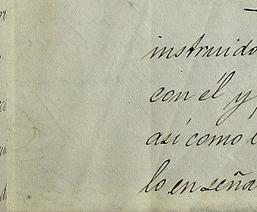 instruido
con él y
así como
lo enseña